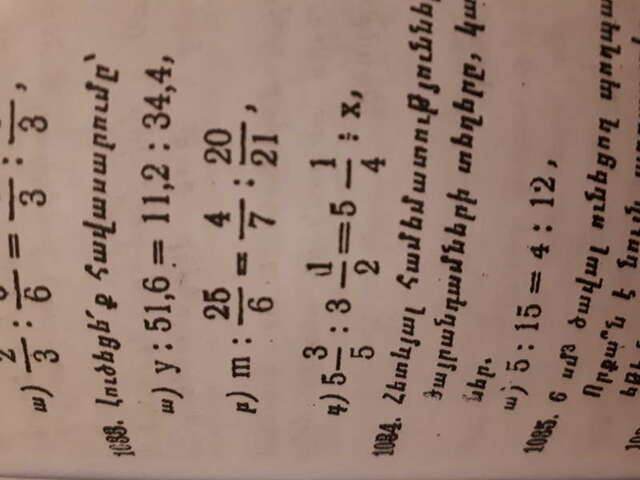 ա) 2/3 : 6 = 3 : 3,
1083. Լուծեցե՛ք հավասարումը՝
ա) y : 51,6 = 11,2 : 34,4,
բ) m : 25/6 = 4/7 : 20/21,
գ) 5 3/5 : 3 1/2 = 5 1/4 : x,
1084. Հետևյալ համեմատություննե
ծայրանդամների տեղերը, կա
ներ.
ա) 5 : 15 = 4 : 12,
1085. 6 սմ³ ծավալ ունեցող պողպա
Որքա՞ն է նույն